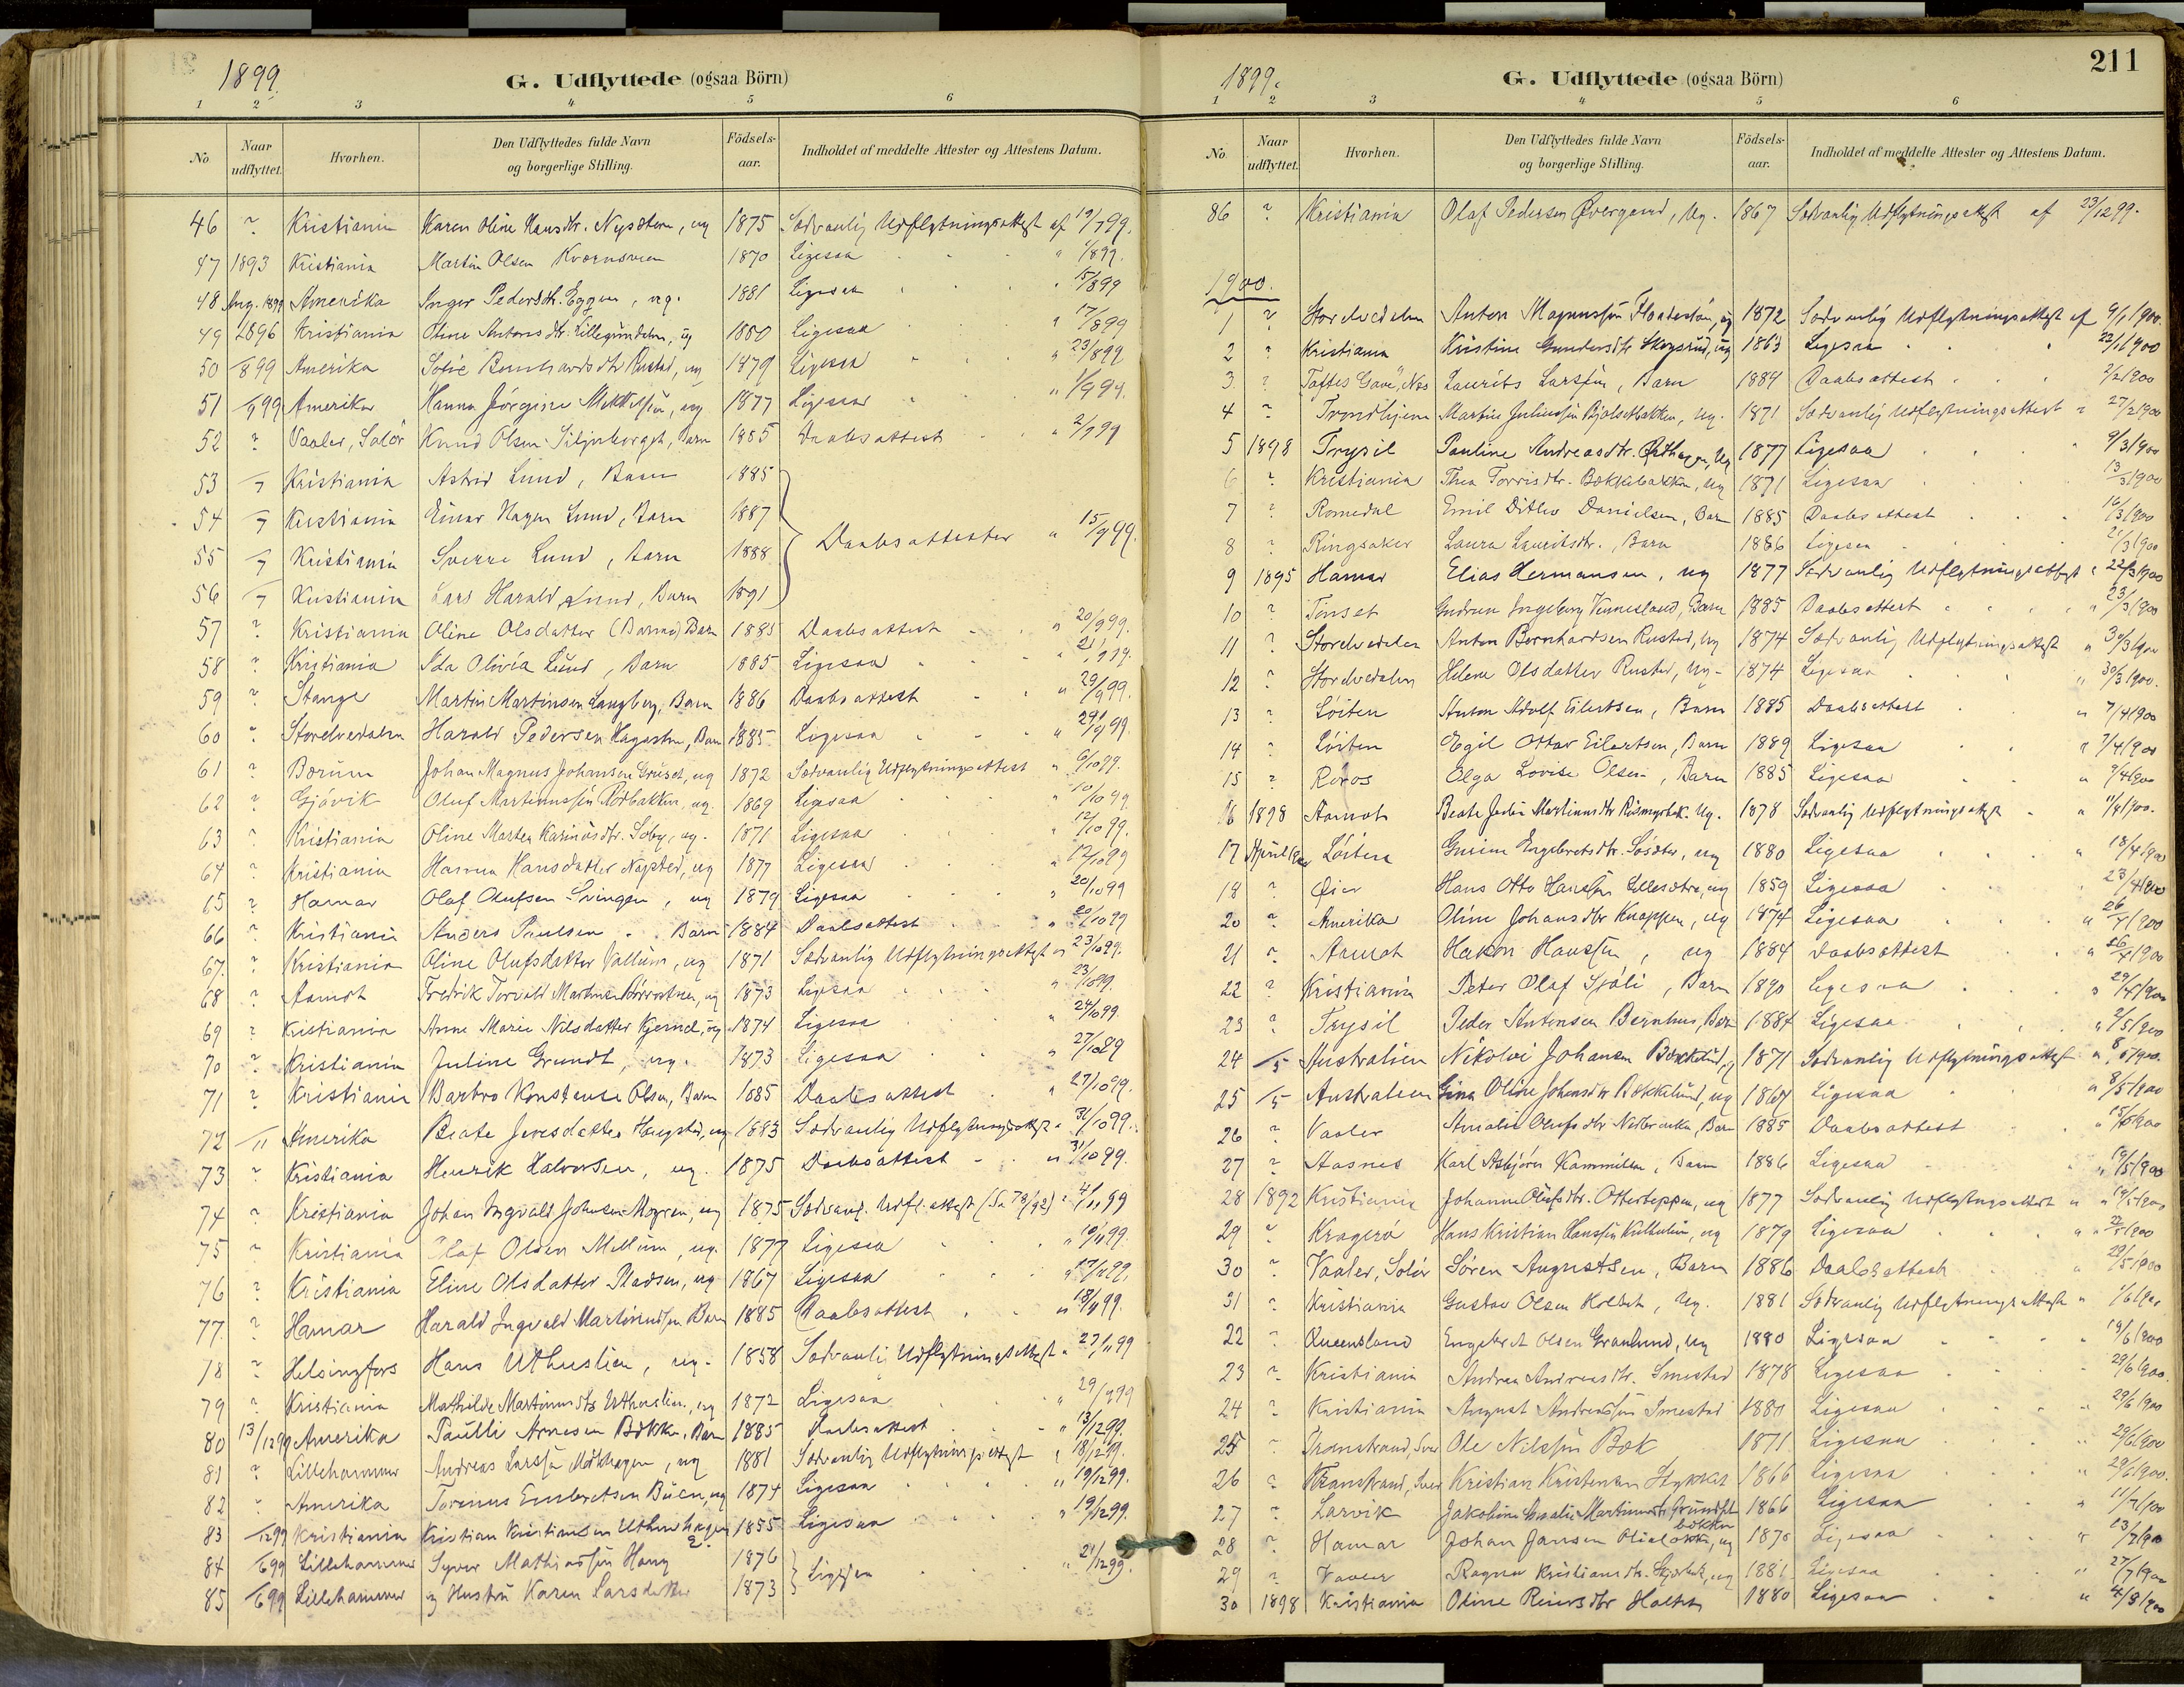 1899.
G. Udflyttede (ogsaa Börn)
1 2 3 4 5 6
No Naar udflyttet. Hvorhen. Den Udflyttedes fulde Navn og borgerlige Stilling. Födsels-aar. Indholdet af meddelte Attester og Attestens Datum.
46 ? Kristiania Karen Oline Hansdtr. ug 1875 Sædvanlig Udflytningsattest af 19/7 99.
47 1893 Kristiania Martin Olsen Kvernsveen 1870 Ligesaa " 1/8 99.
48 Aug. 1899 Amerika Inger Pedersdtr. Eggen, ug. 1881 Ligesaa " 15/8 99
49 1896 Kristiania Oline Antonsdtr. Lillegrundseter, ug 1880 Ligesaa " 17/8 99
50 /8 99 Amerika Sofie Bernhardsdtr Rustad, ug 1879 Ligesaa " 23/8 99
51 /9 99 Amerika Hanna Jörgine ug 1877 Ligesaa " 1/9 99.
52 ? Vaaler, Solör Knud Olsen Barn 1885 Daabsattest " 2/9 99
53 /7 Kristiania Astrid Lund, Barn 1885
54 /7 Kristiania Einar Hagen Lund, Barn 1887
Daabsattester " 15/9 99.
55 /7 Kristiania Sverre Lund, Barn 1888
56 /7 Kristiania Lars Harald Lund, Barn 1891
57 ? Kristiania Oline Olsdatter Barn 1885 Daabsattest " 20/9 99.
58 ? Kristiania Ida Olivia Lund, Barn 1885 Ligesaa " 21/9 99.
59 ? Stange Martin Martinsen Langberg, Barn 1886 Daabsattest " 29/9 99.
60 ? Storelvedalen Harald Pedersen Barn 1885 Ligesaa " 29/9 99.
61 ? Bærum Johan Magnus Johansen Grüset, ug 1872 Sædvanlig Udflytningsattest " 6/10 99.
62 ? Gjövik Oluf Martinussen ug. 1869 Ligesaa " 10/10 99.
63 ? Kristiania Oline Martea Karinusdtr. Soby, ug. 1871 Ligesaa " 12/10 99.
64 ? Kristiania Hanna Hansdatter ug 1877 Ligesaa " 17/10 99
65 ? Hamar Olaf Olufsen Svingen, ug 1879 Ligesaa " 20/10 99
66 ? Kristiania Anders Paulsen Barn 1884 Daabsattest 20/10 99
67. ? Kristiania Oline Olufsdatter ug 1871 Sædvanlig Udflytningsattest " 23/10 99.
68 ? Aamot Fredrik Torvald ug 1873 Ligesaa " 23/10 99.
69 ? Kristiania Anne Marie Nilsdatter Kjernet, ug 1874 Ligesaa " 24/10 99.
70 ? Kristiania Juline Grundt, ug. 1873 Ligesaa " 27/10 89
71 ? Kristiania Barbro Konstanse Olsen, Barn 1885 Daabsattest " 27/10 99.
72 /11 Amerika Beate Jensdatter Haugstad, ug 1883 Sædvanlig Udflytningsattest " 31/10 99.
73 ? Kristiania Henrik Halvorsen, ug. 1875 Daabsattest " 31/10 99.
74 ? Kristiania Johan Ingvald Johnsen Mogren, ug 1875 Sædvanl. Udfl.attest " 4/11 99
75 ? Kristiania Olaf Olsen Mellum, ug. 1877 Ligesaa " 10/11 99.
76 ? Kristiania Eline Olsdatter Pladsen, ug 1867 Ligesaa " 17/11 99.
77. ? Hamar Harald Ingvald Martinussen Barn 1885 Daabsattest " 18/11 99.
78 ? Helsingfors Hans Uthuslien, ug. 1858 Sædvanlig Udflytningsattest " 27/11 99
79 ? Kristiania Mathilde Martinusdtr Uthuslien, ug 1872 Ligesaa " 29/11 99
80 13/12 99 Amerika Paulli Arnesen Bækken, Barn 1885 Daabsattest " 13/12 99.
81 ? Lillehammer Andreas Larssön ug 1881 Sædvanlig Udflytningsattest " 18/12 99.
82 ? Amerika Torinus Embretsen ug 1874 Ligesaa " 19/12 99.
83 /12 99 Kristiania Kristian Kristiansen 1855 Ligesaa " 19/12 99.
84 /6 99 Lillehammer Syver Mathiassön Haug 1876
Ligesaa " 21/12 99.
85 /6 99 Lillehammer og Hustru Karen Larsdatter 1873
211
1899.
G. Udflyttede (ogsaa Börn)
1 2 3 4 5 6
No. Naar udflyttet. Hvorhen. Den Udflyttedes fulde Navn og borgerlige Stilling. Födsels-aar. Indholdet af meddelte Attester og Attestens Datum.
86 ? Kristiania Olaf Pedersen Øvergaard, ug. 1867 Sædvanlig Udflytningsattest af 23/12 99.
1900.
1 ? Storelvedalen Anton Magnussön ug 1872 Sædvanlig Udflytningsattest af 9/1 1900.
2 ? Kristiania Kristine Gundersdtr Skogsrud, ug 1863 Ligesaa " 22/1 1900
3. ? "Toftes Gave", Næs Laurits Larssön, Barn 1884 Daabsattest 2/2 1900
4 ? Trondhjem Martin Juliussön ug. 1871 Sædvanlig Udflytningsattest " 27/2 1900
5 1898 Trysil Pauline Andreasdtr. ug 1877 Ligesaa " 9/3 1900
6 ? Kristiania Thea Torrisdtr. Bækkebakken, ug 1871 Ligesaa 13/3 1900
7 ? Romedal Emil Ditlev Danielsen, Barn 1885 Daabsattest 16/3 1900
8 ? Ringsaker Laura Lauritsdtr., Barn 1886 Ligesaa 21/3 1900
9 1895 Hamar Elias Hermansen, ug 1877 Sædvanlig Udflytningsattest " 22/3 1900
10 ? Tönset Gudrun Ingeborg Vennesland, Barn 1885 Daabsattest " 23/3 1900
11 ? Storelvedalen Anton Bernhardsen Rustad, ug 1874 Sædvanlig Udflytningsattest " 30/3 1900
12 ? Storelvedalen Helene Olsdatter Rustad, ug. 1874 Ligesaa " 30/3 1900.
13 ? Löiten Anton Adolf Eilertsen, Barn 1885 Daabsattest " 7/4 1900
14 ? Löiten Egil Ottar Eilertsen, Barn 1889 Ligesaa " 7/4 1900
15 ? Röros Olga Lovise Olsen, Barn 1885 Ligesaa " 9/4 1900
16 1898 Aamot Beate Martinusdtr ug. 1878 Sædvanlig Udflytningsattest " 11/4 1900.
17 April Löiten Gurine Engebretsdtr. ug 1880 Ligesaa " 18/4 1900
18 ? Øier Hans Otto Hanssön ug 1859 Ligesaa 23/4 1900
20 ? Amerika Oline Johansdtr Knappen, ug 1874 Ligesaa " 26/4 1900
21 ? Aamot Hakon Hanssen, ug 1884 Daabsattest " 26/4 1900
22 ? Kristiania Peter Olaf Sjöli, Barn 1890 Ligesaa " 29/4 1900
23 ? Trysil Peder Antonsen Barn 1884 Ligesaa " 2/5 1900
24 /5 Australien Nikolai Johansen Bækkelund, 1871 Sædvanlig Udflytningsattest " 8/5 1900.
25 /5 Australien Gina Oline Johansdtr Bækkelund, ug 1867 Ligesaa " 8/5 1900
26 ? Vaaler Amalie Olufsdtr Barn 1885 Daabsattest " 15/5 1900
27 ? Aasnes Karl Asbjörn Barn 1886 Ligesaa " 18/5 1900
28 1892 Kristiania Johanne Olufsdtr. ug 1877 Sædvanlig Udflytngsattest " 19/5 1900
29 ? Kragerö Hans Kristian Hanssön ug 1879 Ligesaa " 22/5 1900
30 ? Vaaler, Solör Sören Augustsen, Barn 1886 Daabsattest " 29/5 1900
31 ? Kristiania Gustav Olsen ug. 1881 Sædvanlig Udflytningsattest " 1/6 1900
22 ? Queensland Engebret Olsen Granlund, ug 1880 Ligesaa " 19/6 1900
23 ? Kristiania Andrea Andreasdtr. Smestad 1878 Ligesaa 29/6 1900.
24 ? Kristiania August Andreassön Smestad 1880 Ligesaa " 29/6 1900
25 ? Transtrand, Sver Ole Nilssön Bæk 1871 Ligesaa " 29/6 1900
26 ? Transtrand, Sver Kristian Kristensen 1866 Ligesaa " 29/6 1900.
27 ? Larvik Jakobine Amalie Martinusdtr 1866 Ligesaa " 11/7 1900
28 ? Hamar Johan Jansen ug 1870 Ligesaa " 23/7 1900
29 ? Vaaler Ragna Kristiansdtr. ug 1881 Ligesaa " 27/7 1900
30 1898 Kristiania Oline Reiersdtr 1880 Ligesaa " 4/8 1900